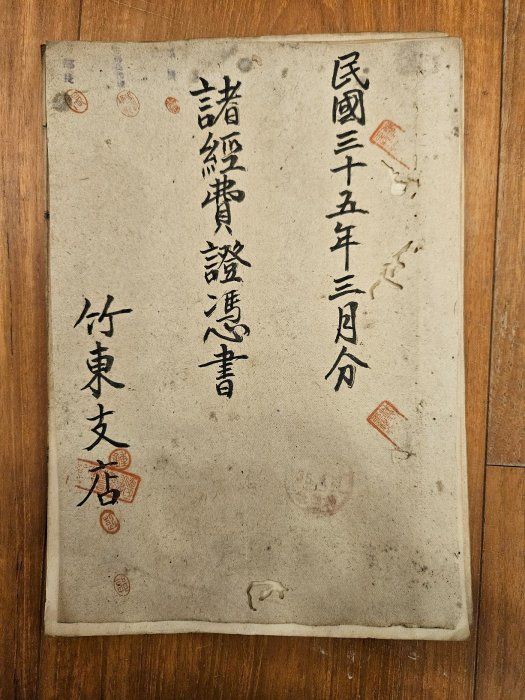 民國三十五年三月分
諸經費證憑書
竹東支店